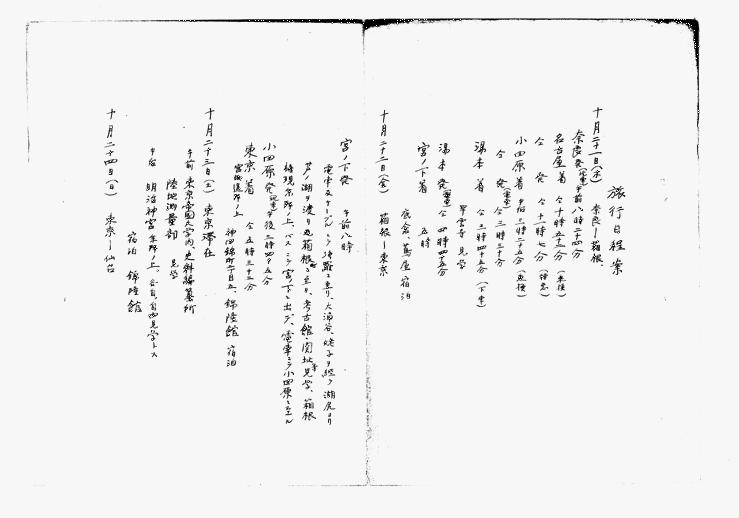 旅行日程案
十月二十一日(木) 奈良―箱根
奈良発(電車)午前八時二十四分
名古屋着 仝十時五十二分(乗換)
仝 発 仝十一時七分
小田原着 午后三時二十五分(乗換)
仝 発(電車)仝三時三十分
湯本着 仝三時四十五分(下車)
早雲寺見学
湯本発(電車)仝四時四十五分
宮ノ下着 五時
底倉、蔦屋宿泊
十月二十二日(金) 箱根―東京
宮ノ下発 午前八時
電車ヨリケーブルニテ 大涌谷、姥子ヲ経テ湖尻ヨリ
芦ノ湖ヲ渡リ元箱根ニ至リ、考古館、関址等見学、箱根
権現参拝ノ上、バスニテ宮ノ下ニ出デ、電車ニテ小田原ニ至ル
小田原発(電車)午後三時四十五分
東京着 仝五時三十三分
宮城遥拝ノ上 神田錦町 錦陸館 宿泊
十月二十三日(土) 東京滞在
午前 東京帝国大学内、史料編纂所
陸地測量部 見学
午后 明治神宮参拝ノ上、各自、自由見学トス
宿泊 錦陸館
十月二十四日(日) 東京―仙台